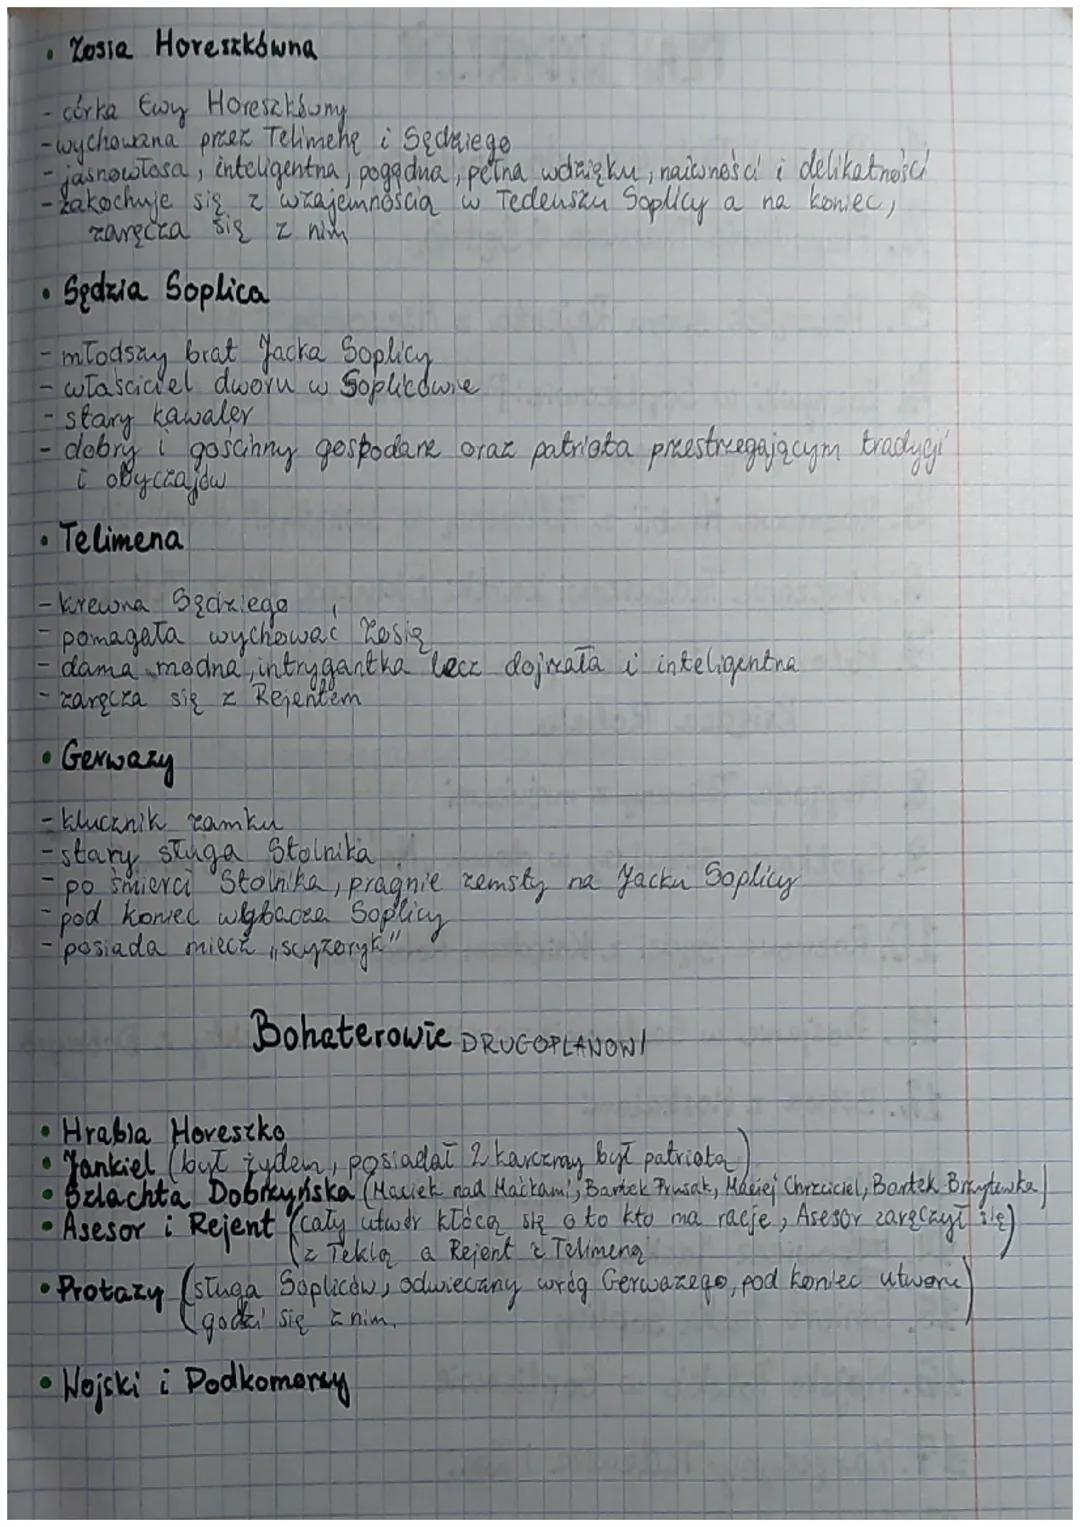 • Zosia Horeszkówna
- córka Ewy Horeszkówny
- wychowana przez Telimenę i Sędziego
- jasnowłosa, inteligentna, pogodna, pełna wdzięku, naiwności i delikatności
- zakochuje się z wzajemnością w Tedeuszu Soplicy a na koniec,
zaręcza się z nim
• Sędzia Soplica
- młodszy brat Jacka Soplicy
- właściciel dworu w Soplicowie
- stary kawaler
- dobry i gościnny gospodarz oraz patriota przestrzegającym tradycji
i obyczajów
• Telimena
- krewna Sędziego
- pomagała wychować Zosię
- dama modna, intrygantka lecz dojrzała i inteligentna
- zaręcza się z Rejentem
• Gerwazy
- klucznik zamku
- stary sługa Stolnika
- po śmierci Stolnika, pragnie zemsty na Jacku Soplicy
- pod koniec wybacza Soplicy
- posiada miecz „scyzoryk"
Bohaterowie DRUGOPLANOWI
• Hrabia Horeszko
• Jankiel (był żydem, posiadał 2 karczmy był patriotą)
• Szlachta Dobrzyńska (Maciek nad Maćkami, Bartek Prusak, Maciej Chrzciciel, Bartek Brzytewka)
• Asesor i Rejent (cały utwór kłócą się o to kto ma racje, Asesor zaręczył się)
(z Teklą a Rejent z Telimeną
• Protazy (sługa Sopliców, odwieczny wróg Gerwazego, pod koniec utworu)
(godzi się z nim.
• Wojski i Podkomorzy